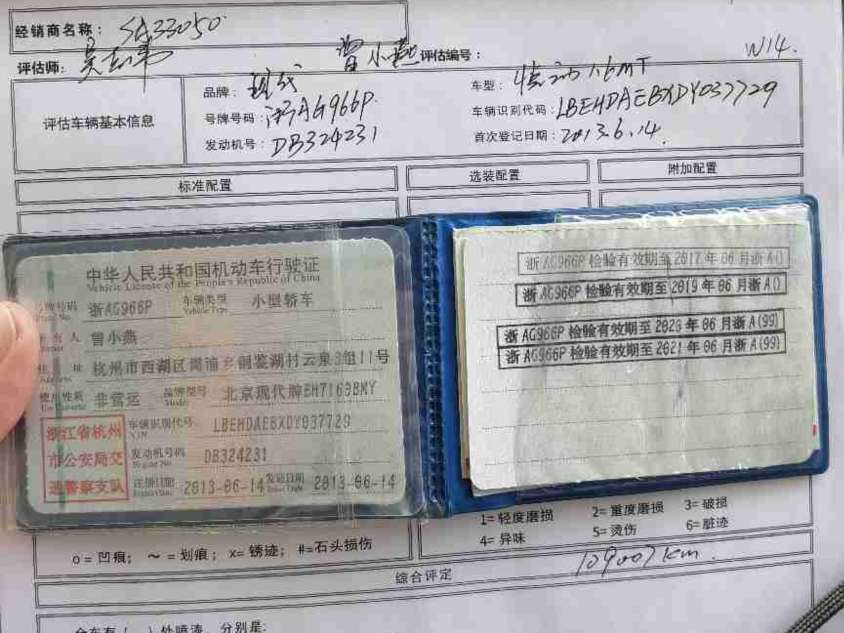 经销商名称: SA33050
评估师: 曾小燕 评估编号: W14.
品牌: 现代 车型: 悦动1.6MT
评估车辆基本信息 号牌号码: 浙AG966P 车辆识别代码: LBEHDAEBXDY037729
发动机号: DB324231 首次登记日期: 2013.6.14.
标准配置 选装配置 附加配置
中华人民共和国机动车行驶证
Vehicle License of the People's Republic of China
号牌号码 浙AG966P 车辆类型 小型轿车
Plate No. Vehicle Type
所有人 曾小燕
住址 杭州市西湖区周浦乡铜鉴湖村云泉3组11号
Address
使用性质 非营运 品牌型号 北京现代牌BH7163BMY
Use Character Model
浙江省杭州
市公安局交
通警察支队
车辆识别代号 LBEHDAEBXDY037729
VIN
发动机号码 DB324231
Engine No.
注册日期 2013-06-14 发证日期 2013-06-14
Register Date Issue Date
浙AG966P 检验有效期至2017年06月浙A()
浙AG966P 检验有效期至2019年06月浙A()
浙AG966P 检验有效期至2020年06月浙A(99)
浙AG966P 检验有效期至2021年06月浙A(99)
o=凹痕; ～=划痕; x=锈迹; #=石头损伤
1=轻度磨损 2=重度磨损 3=破损
4=异味 5=烫伤 6=脏迹
109007km.
综合评定
全车有( )处喷漆, 分别是: